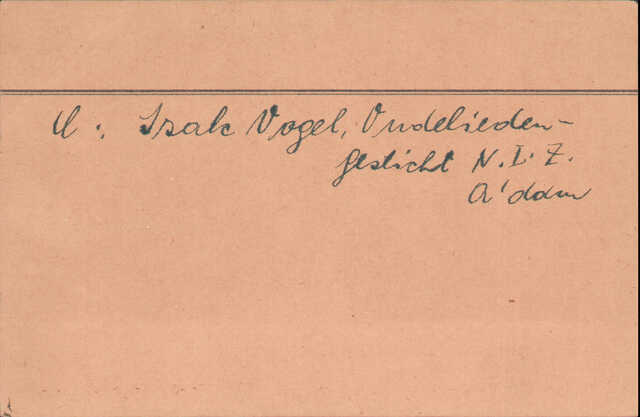 V: Isak Vogel, Oudelieden-
gesticht N.I.Z.
A'dam